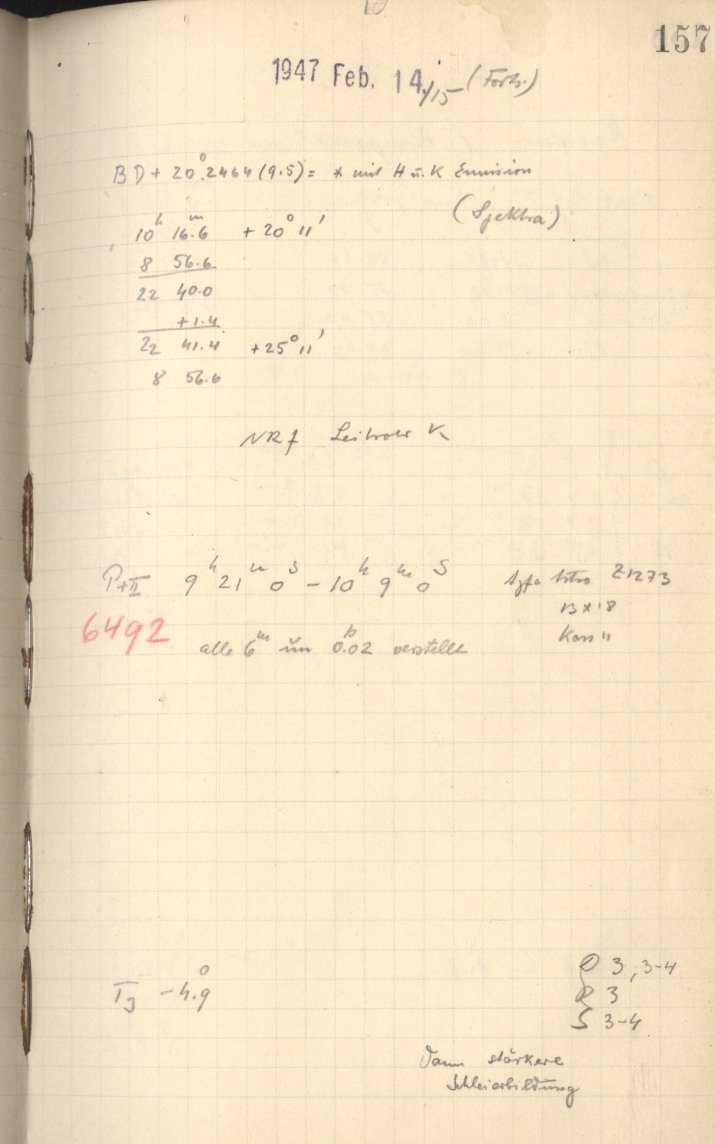 157
1947 Feb. 14./15 (Forts.)
BD + 20°.2464 (9.5) = * mit H u. K Emission
(Spektra)
10h 16.6m + 20° 11'
8 56.6
22 40.0
+1.4
22 41.4 + 25° 11'
8 56.6
NR f Leitrohr K
P+II 9h 21m 0s – 10h 9m 0s Agfa Z1273
6492
13 x 18
alle 6m um 0.02 verstellt
Korn
TJ – 4.9°
O 3, 3-4
R 3
S 3-4
Dann stärkere
Schleierbildung